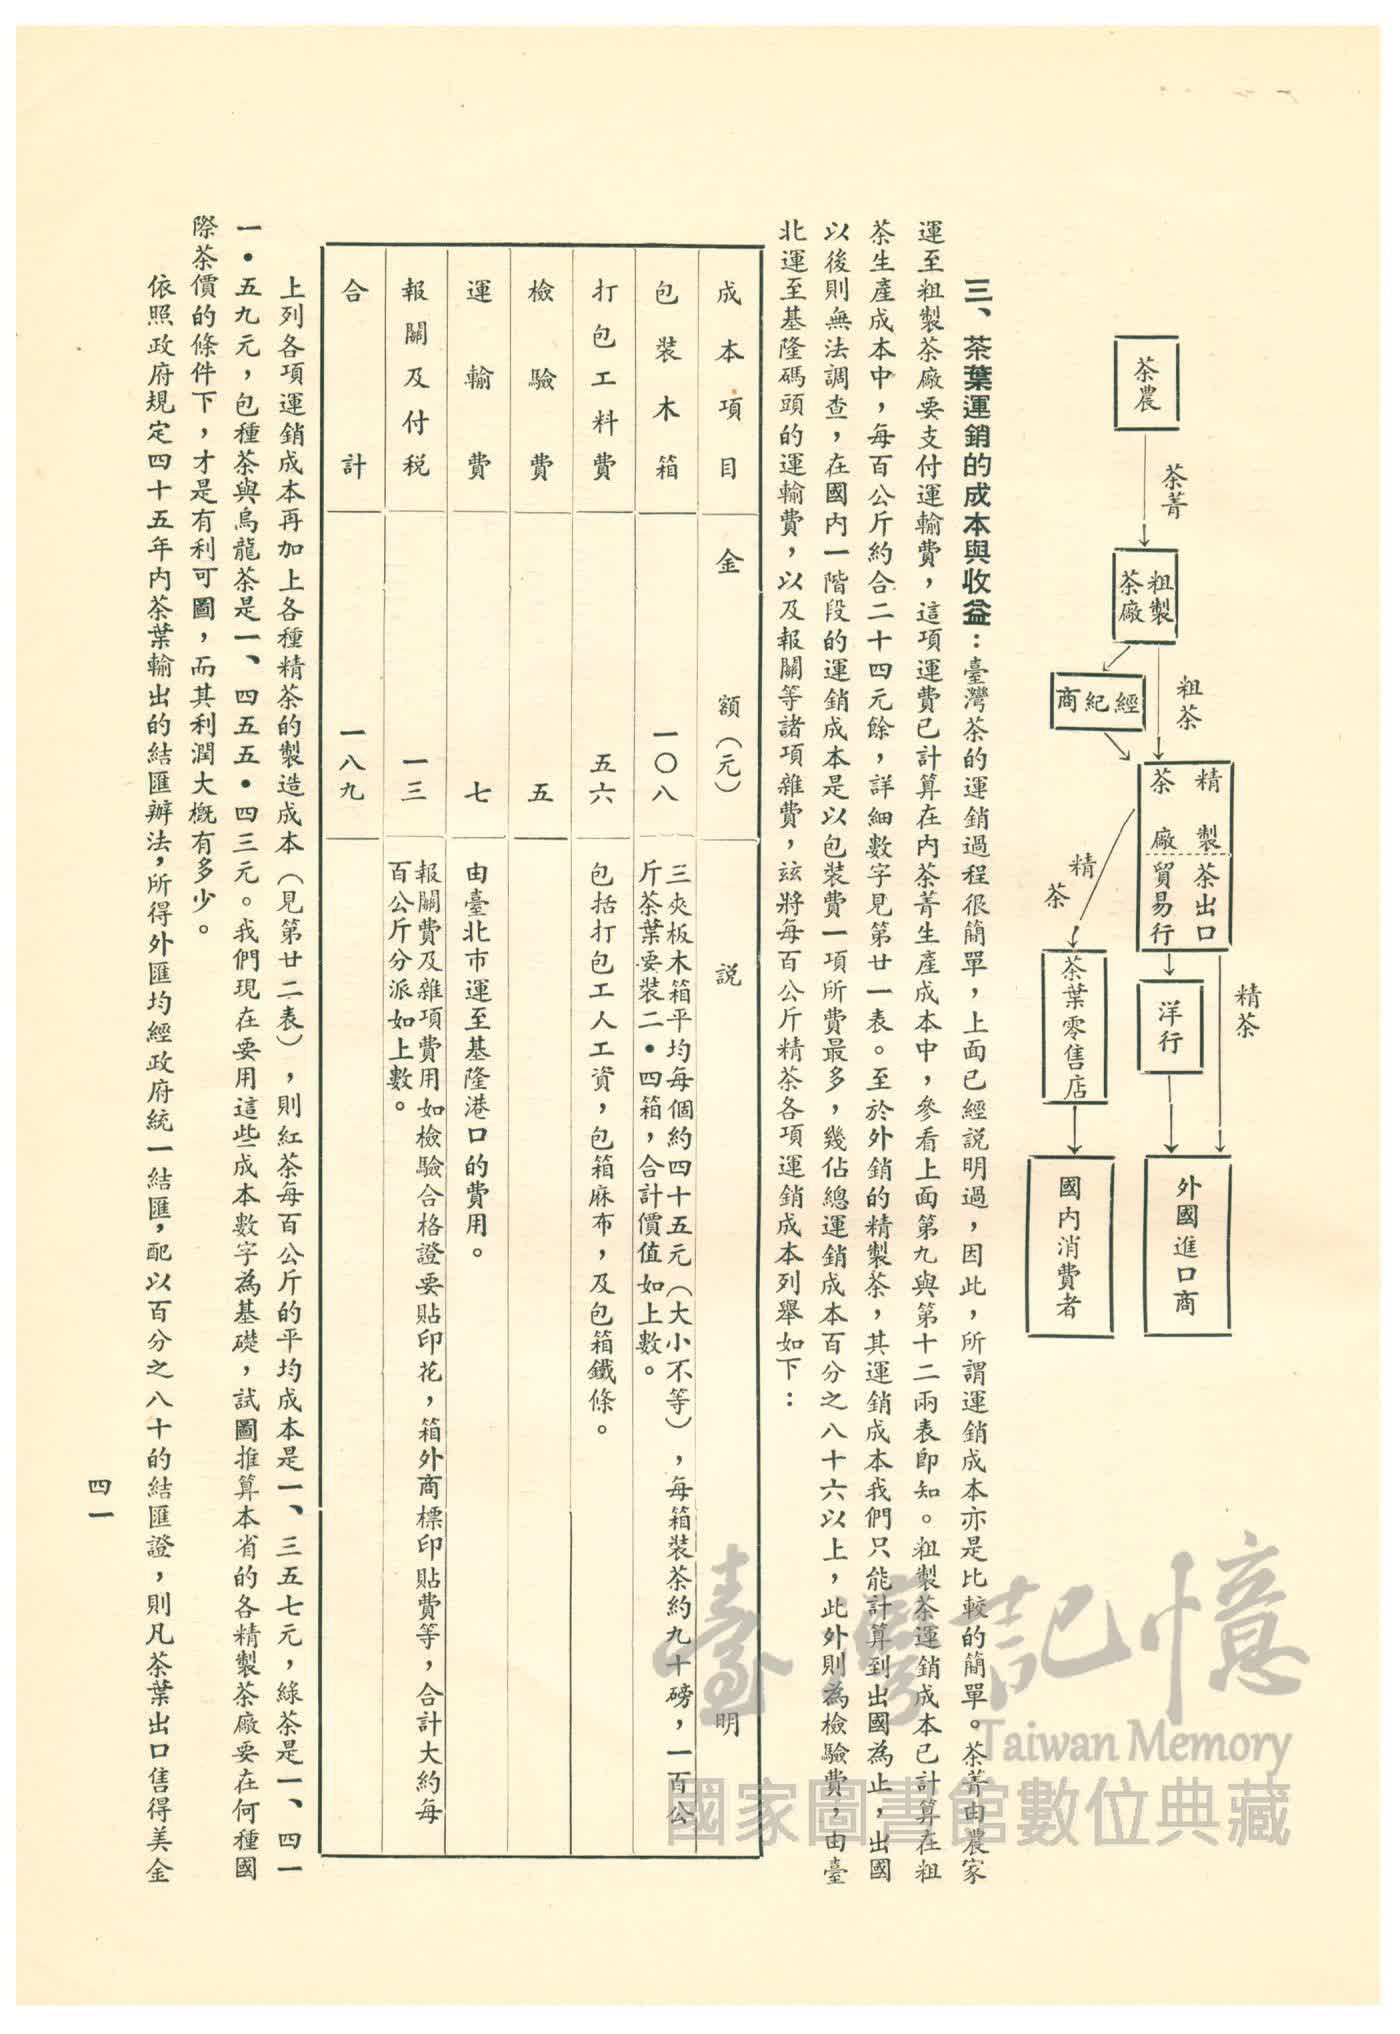 茶農
茶菁
粗製
茶廠
粗茶
經紀商
精製
茶廠
茶出口
貿易行
精茶
精茶
洋行
茶葉零售店
外國進口商
國內消費者
三、茶葉運銷的成本與收益：臺灣茶的運銷過程很簡單，上面已經說明過，因此，所謂運銷成本亦是比較的簡單。茶菁由農家
運至粗製茶廠要支付運輸費，這項運費已計算在內茶菁生產成本中，參看上面第九與第十二兩表即知。粗製茶運銷成本已計算在粗
茶生產成本中，每百公斤約合二十四元餘，詳細數字見第廿一表。至於外銷的精製茶，其運銷成本我們只能計算到出國為止，出國
以後則無法調查，在國內一階段的運銷成本是以包裝費一項所費最多，幾佔總運銷成本百分之八十六以上，此外則為檢驗費，由臺
北運至基隆碼頭的運輸費，以及報關等諸項雜費，茲將每百公斤精茶各項運銷成本列舉如下：
成本項目 金額（元） 說明
包裝木箱 一〇八 三夾板木箱平均每個約四十五元（大小不等），每箱裝茶約九十磅，一百公
斤茶葉要裝二•四箱，合計價值如上數。
打包工料費 五六 包括打包工人工資，包箱麻布，及包箱鐵條。
檢驗費 五
運輸費 七 由臺北市運至基隆港口的費用。
報關及付稅 一三 報關費及雜項費用如檢驗合格證要貼印花，箱外商標印貼費等，合計大約每
百公斤分派如上數。
合計 一八九
上列各項運銷成本再加上各種精茶的製造成本（見第廿二表），則紅茶每百公斤的平均成本是一、三五七元，綠茶是一、四一
一•五九元，包種茶與烏龍茶是一、四五五•四三元。我們現在要用這些成本數字為基礎，試圖推算本省的各精製茶廠要在何種國
際茶價的條件下，才是有利可圖，而其利潤大概有多少。
依照政府規定四十五年內茶葉輸出的結匯辦法，所得外匯均經政府統一結匯，配以百分之八十的結匯證，則凡茶葉出口售得美金
四一
臺灣記憶
Taiwan Memory
國家圖書館數位典藏